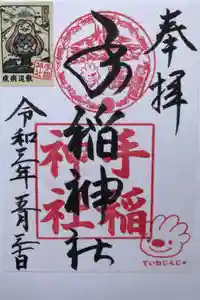 奉拝
手稲神社
手稲
神社
ていねじんじゃ
令和三年五月三日
疾病退散